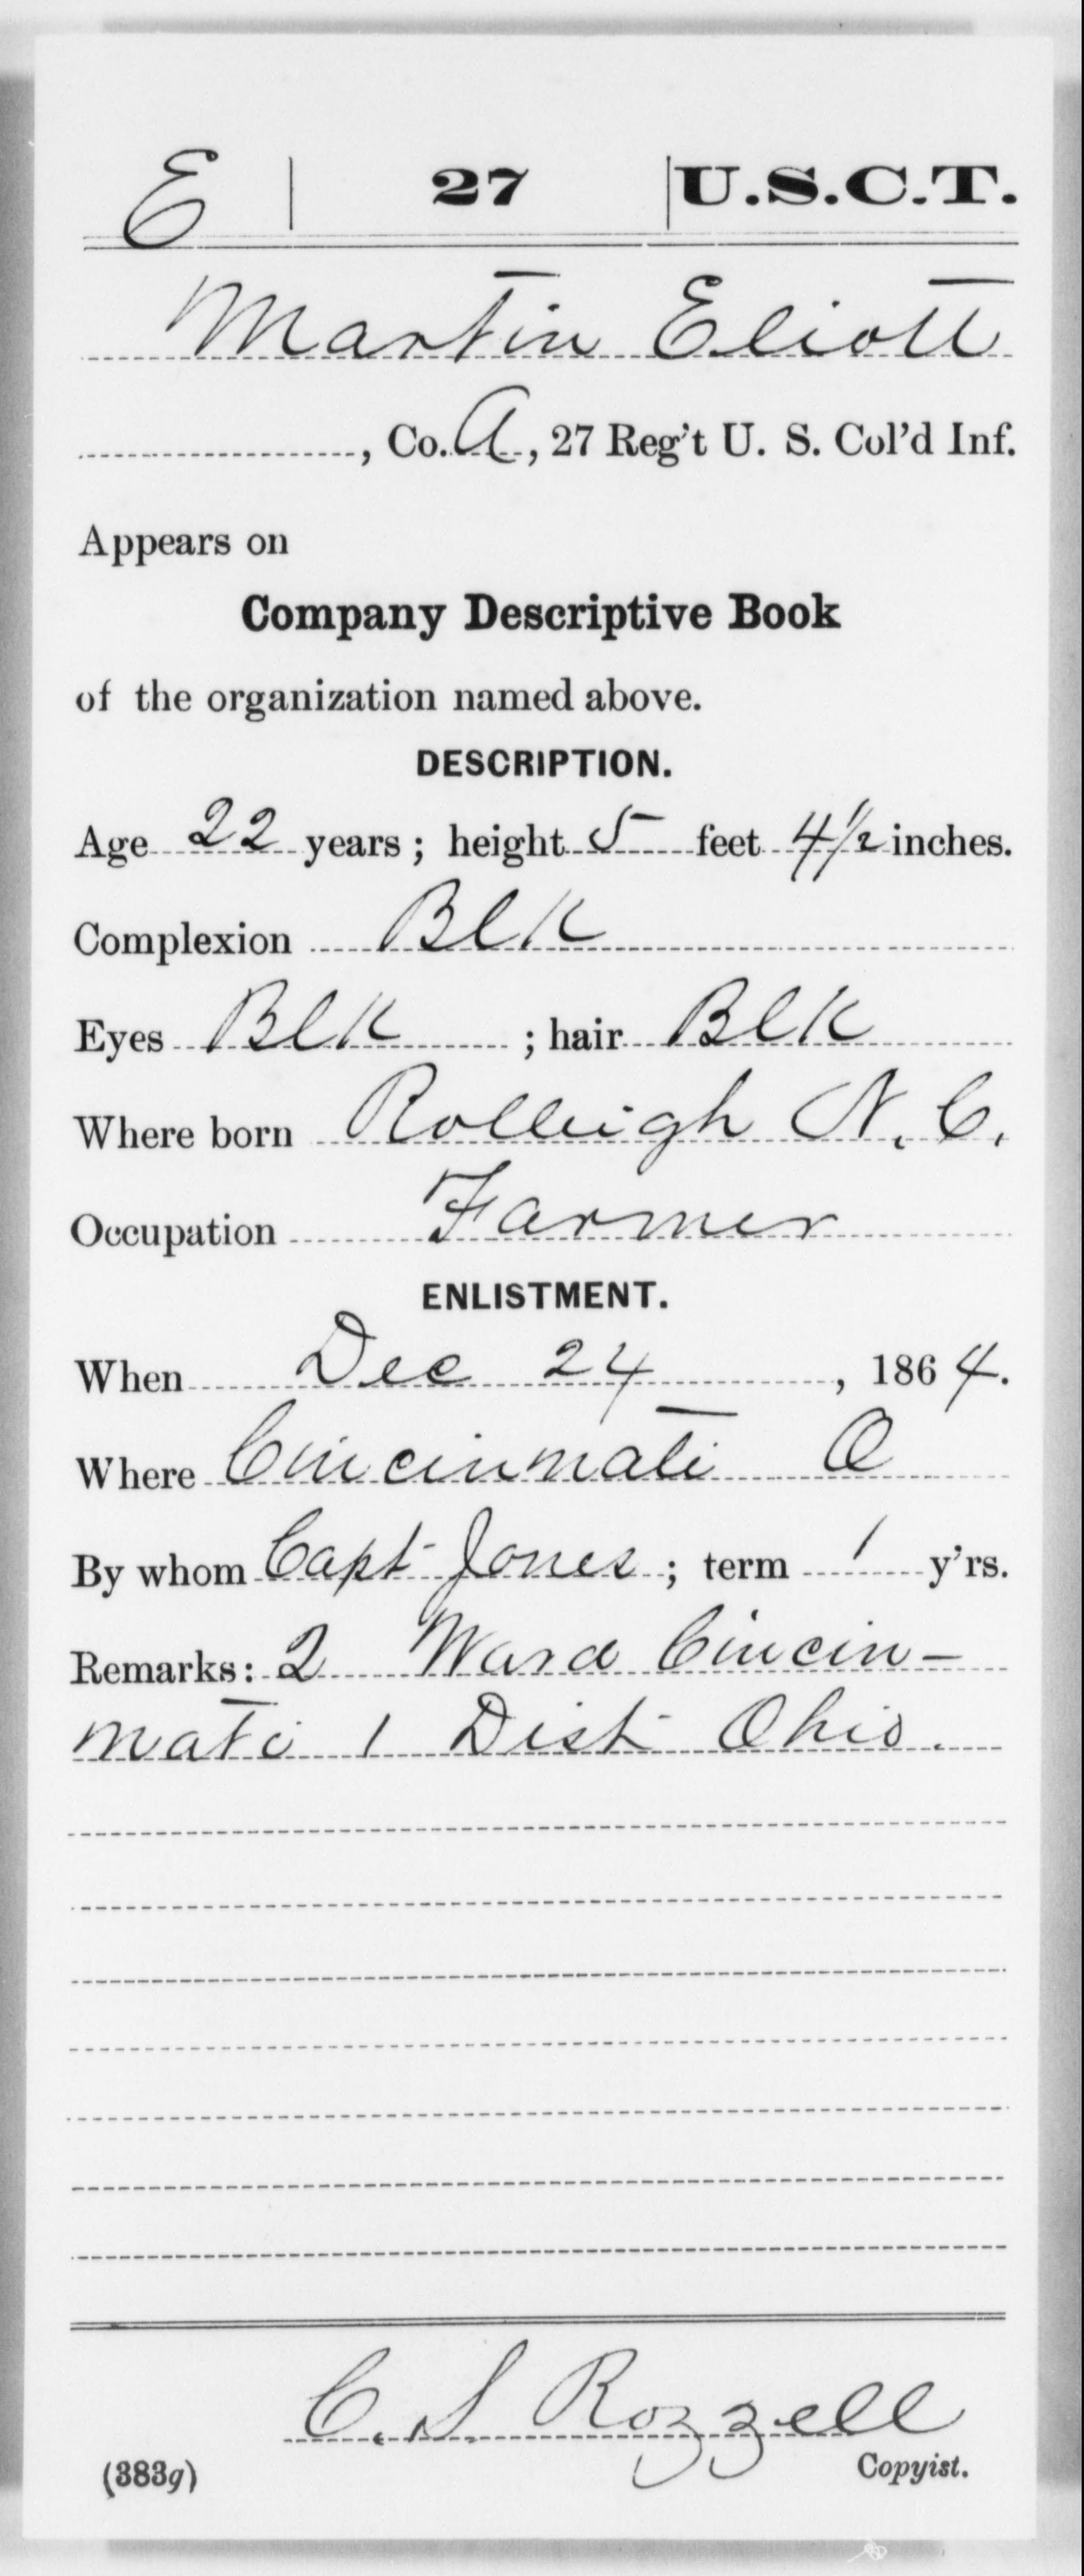 E | 27 | U.S.C.T.
Martin Eliott
, Co. A, 27 Reg't U. S. Col'd Inf.
Appears on
Company Descriptive Book
of the organization named above.
DESCRIPTION.
Age 22 years; height 5 feet 4 1/2 inches.
Complexion Blk
Eyes Blk; hair Blk
Where born Rolleigh N. C.
Occupation Farmer
ENLISTMENT.
When Dec 24, 1864.
Where Cincinnati O
By whom Capt Jones; term 1 y'rs.
Remarks: 2 Ward Cincin-
nati 1 Dist Ohio.
C. S Rozzell
(383g) Copyist.